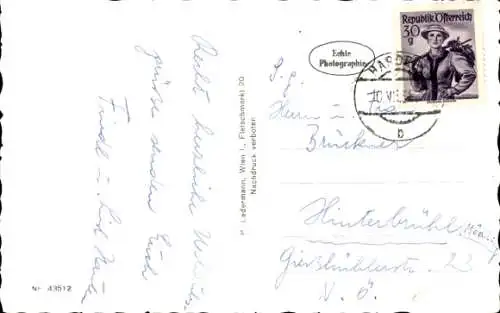 Recht herzliche Urlaubs-
grüße senden Euch
Friedl u.
Nr. 43512
P. Ledermann, Wien I., Fleischmarkt 20
Nachdruck verboten
Echte
Photographie
Republik Österreich
30
g
b
Herrn u.
Brückner
Hinterbrühl
Gießhüblerstr. 22
N. Ö.